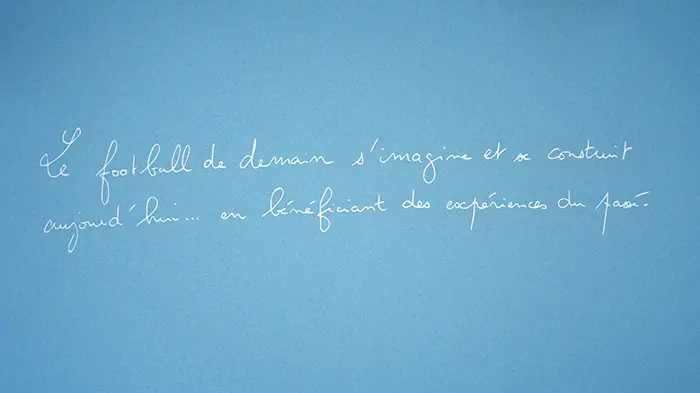 Le football de demain s'imagine et se construit
aujourd'hui... en bénéficiant des expériences du passé.